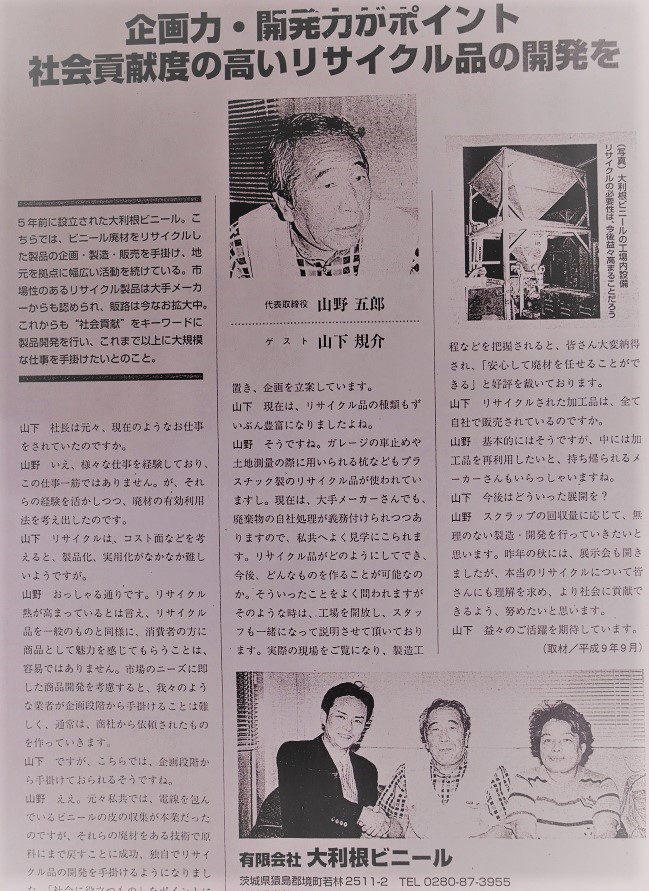 企画力・開発力がポイント
社会貢献度の高いリサイクル品の開発を
5年前に設立された大利根ビニール。こ
ちらでは、ビニール廃材をリサイクルし
た製品の企画・製造・販売を手掛け、地
元を拠点に幅広い活動を続けている。市
場性のあるリサイクル製品は大手メーカ
ーからも認められ、販路は今なお拡大中。
これからも“社会貢献”をキーワードに
製品開発を行い、これまで以上に大規模
な仕事を手掛けたいとのこと。
山下　社長は元々、現在のようなお仕事
をされていたのですか。
山野　いえ、様々な仕事を経験しており、
この仕事一筋ではありません。が、それ
らの経験を活かしつつ、廃材の有効利用
法を考え出したのです。
山下　リサイクルは、コスト面などを考
えると、製品化、実用化がなかなか難し
いようですが。
山野　おっしゃる通りです。リサイクル
熱が高まっているとは言え、リサイクル
品を一般のものと同様に、消費者の方に
商品として魅力を感じてもらうことは、
容易ではありません。市場のニーズに即
した商品開発を考慮すると、我々のよう
な業者が企画段階から手掛けることは難
しく、通常は、商社から依頼されたもの
を作っていきます。
山下　ですが、こちらでは、企画段階か
ら手掛けておられるそうですね。
山野　ええ。元々私共では、電線を包ん
でいるビニールの皮の収集が本業だった
のですが、それらの廃材をある技術で原
料にまで戻すことに成功、独自でリサイ
クル品の開発を手掛けるようになりまし
た。「社会に役立つもの」をポイントに
代表取締役　山野 五郎
ゲスト　山下 規介
置き、企画を立案しています。
山下　現在は、リサイクル品の種類もず
いぶん豊富になりましたよね。
山野　そうですね。ガレージの車止めや
土地測量の際に用いられる杭などもプラ
スチック製のリサイクル品が使われてい
ますし。現在は、大手メーカーさんでも、
廃棄物の自社処理が義務付けられつつあ
りますので、私共へよく見学にこられま
す。リサイクル品がどのようにしてでき、
今後、どんなものを作ることが可能なの
か。そういったことをよく問われますが
そのような時は、工場を開放し、スタッ
フも一緒になって説明させて頂いており
ます。実際の現場をご覧になり、製造工
(写真) 大利根ビニールの工場内設備
リサイクルの必要性は、今後益々高まることだろう
程などを把握されると、皆さん大変納得
され、「安心して廃材を任せることがで
きる」と好評を戴いております。
山下　リサイクルされた加工品は、全て
自社で販売されているのですか。
山野　基本的にはそうですが、中には加
工品を再利用したいと、持ち帰られるメ
ーカーさんもいらっしゃいますね。
山下　今後はどういった展開を？
山野　スクラップの回収量に応じて、無
理のない製造・開発を行っていきたいと
思います。昨年の秋には、展示会も開き
ましたが、本当のリサイクルについて皆
さんにも理解を求め、より社会に貢献で
きるよう、努めたいと思います。
山下　益々のご活躍を期待しています。
(取材／平成9年9月)
有限会社 大利根ビニール
茨城県猿島郡境町若林2511-2　TEL 0280-87-3955